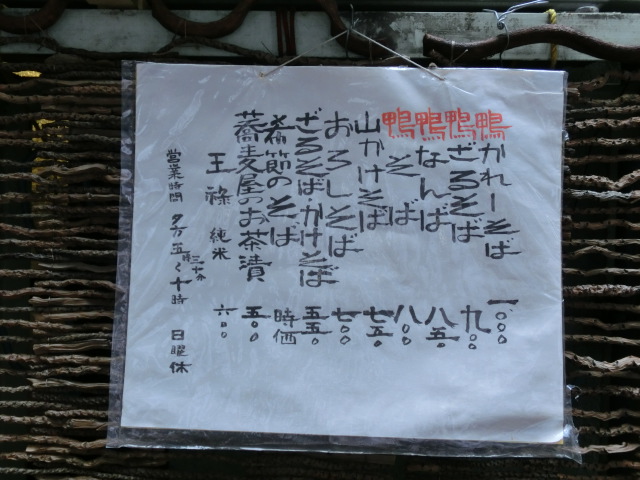 鴨かれーそば 一〇〇〇
鴨ざるそば 九〇〇
鴨なんば 八五〇
鴨そば 八〇〇
山かけそば 七五〇
おろしそば 七〇〇
ざるそば・かけそば 五五〇
季節のそば 時価
蕎麦屋のお茶漬 五〇〇
王祿 純米 六〇〇
営業時間 夕方五時三十分〜十時 日曜休